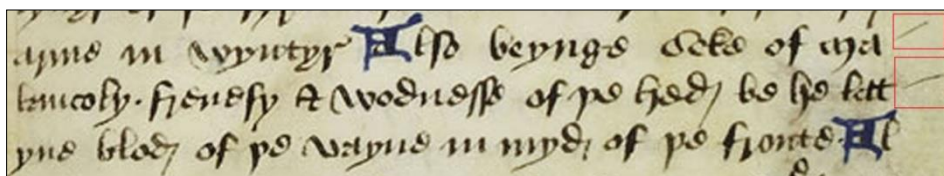 arme in wyntyr Also beynge Seke of ma/
lancoly · frenesy & wodnesse of þe hed be he lett/
yne blod of þe vayne in myd of þe fronte Al